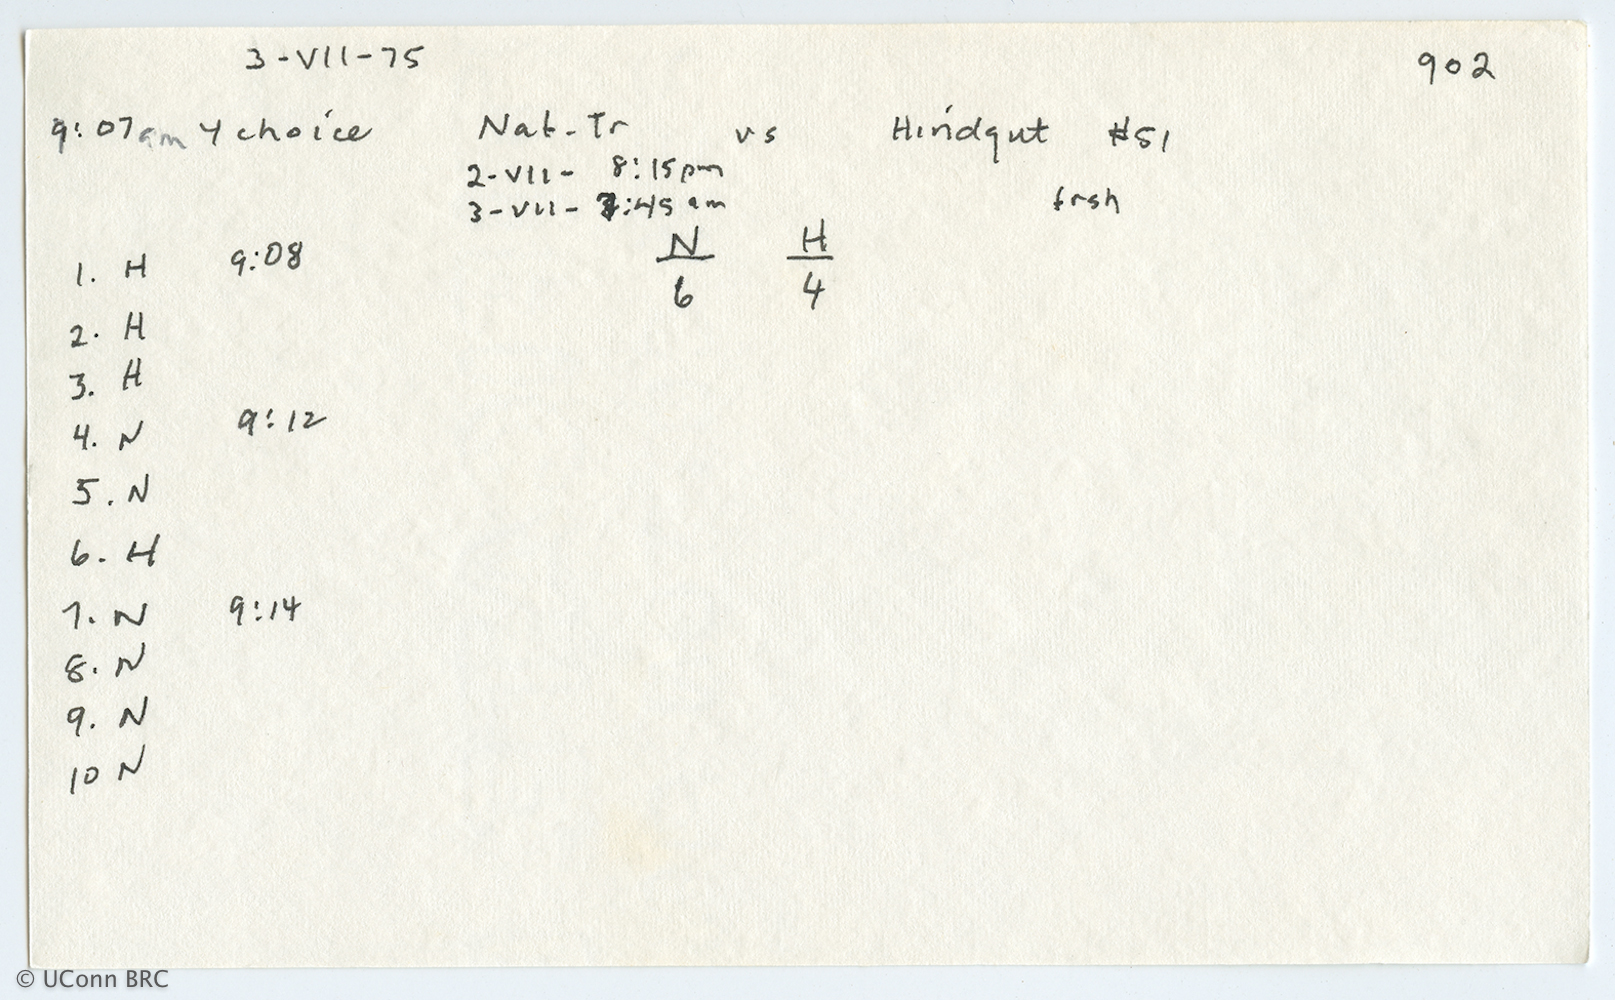 3-VII-75
902
9:07am Y choice Nat-Tr vs Hindgut #51
2-VII- 8:15pm
3-VII- 7:45am frsh
N H
6 4
1. H 9:08
2. H
3. H
4. N 9:12
5. N
6. H
7. N 9:14
8. N
9. N
10 N
© UConn BRC